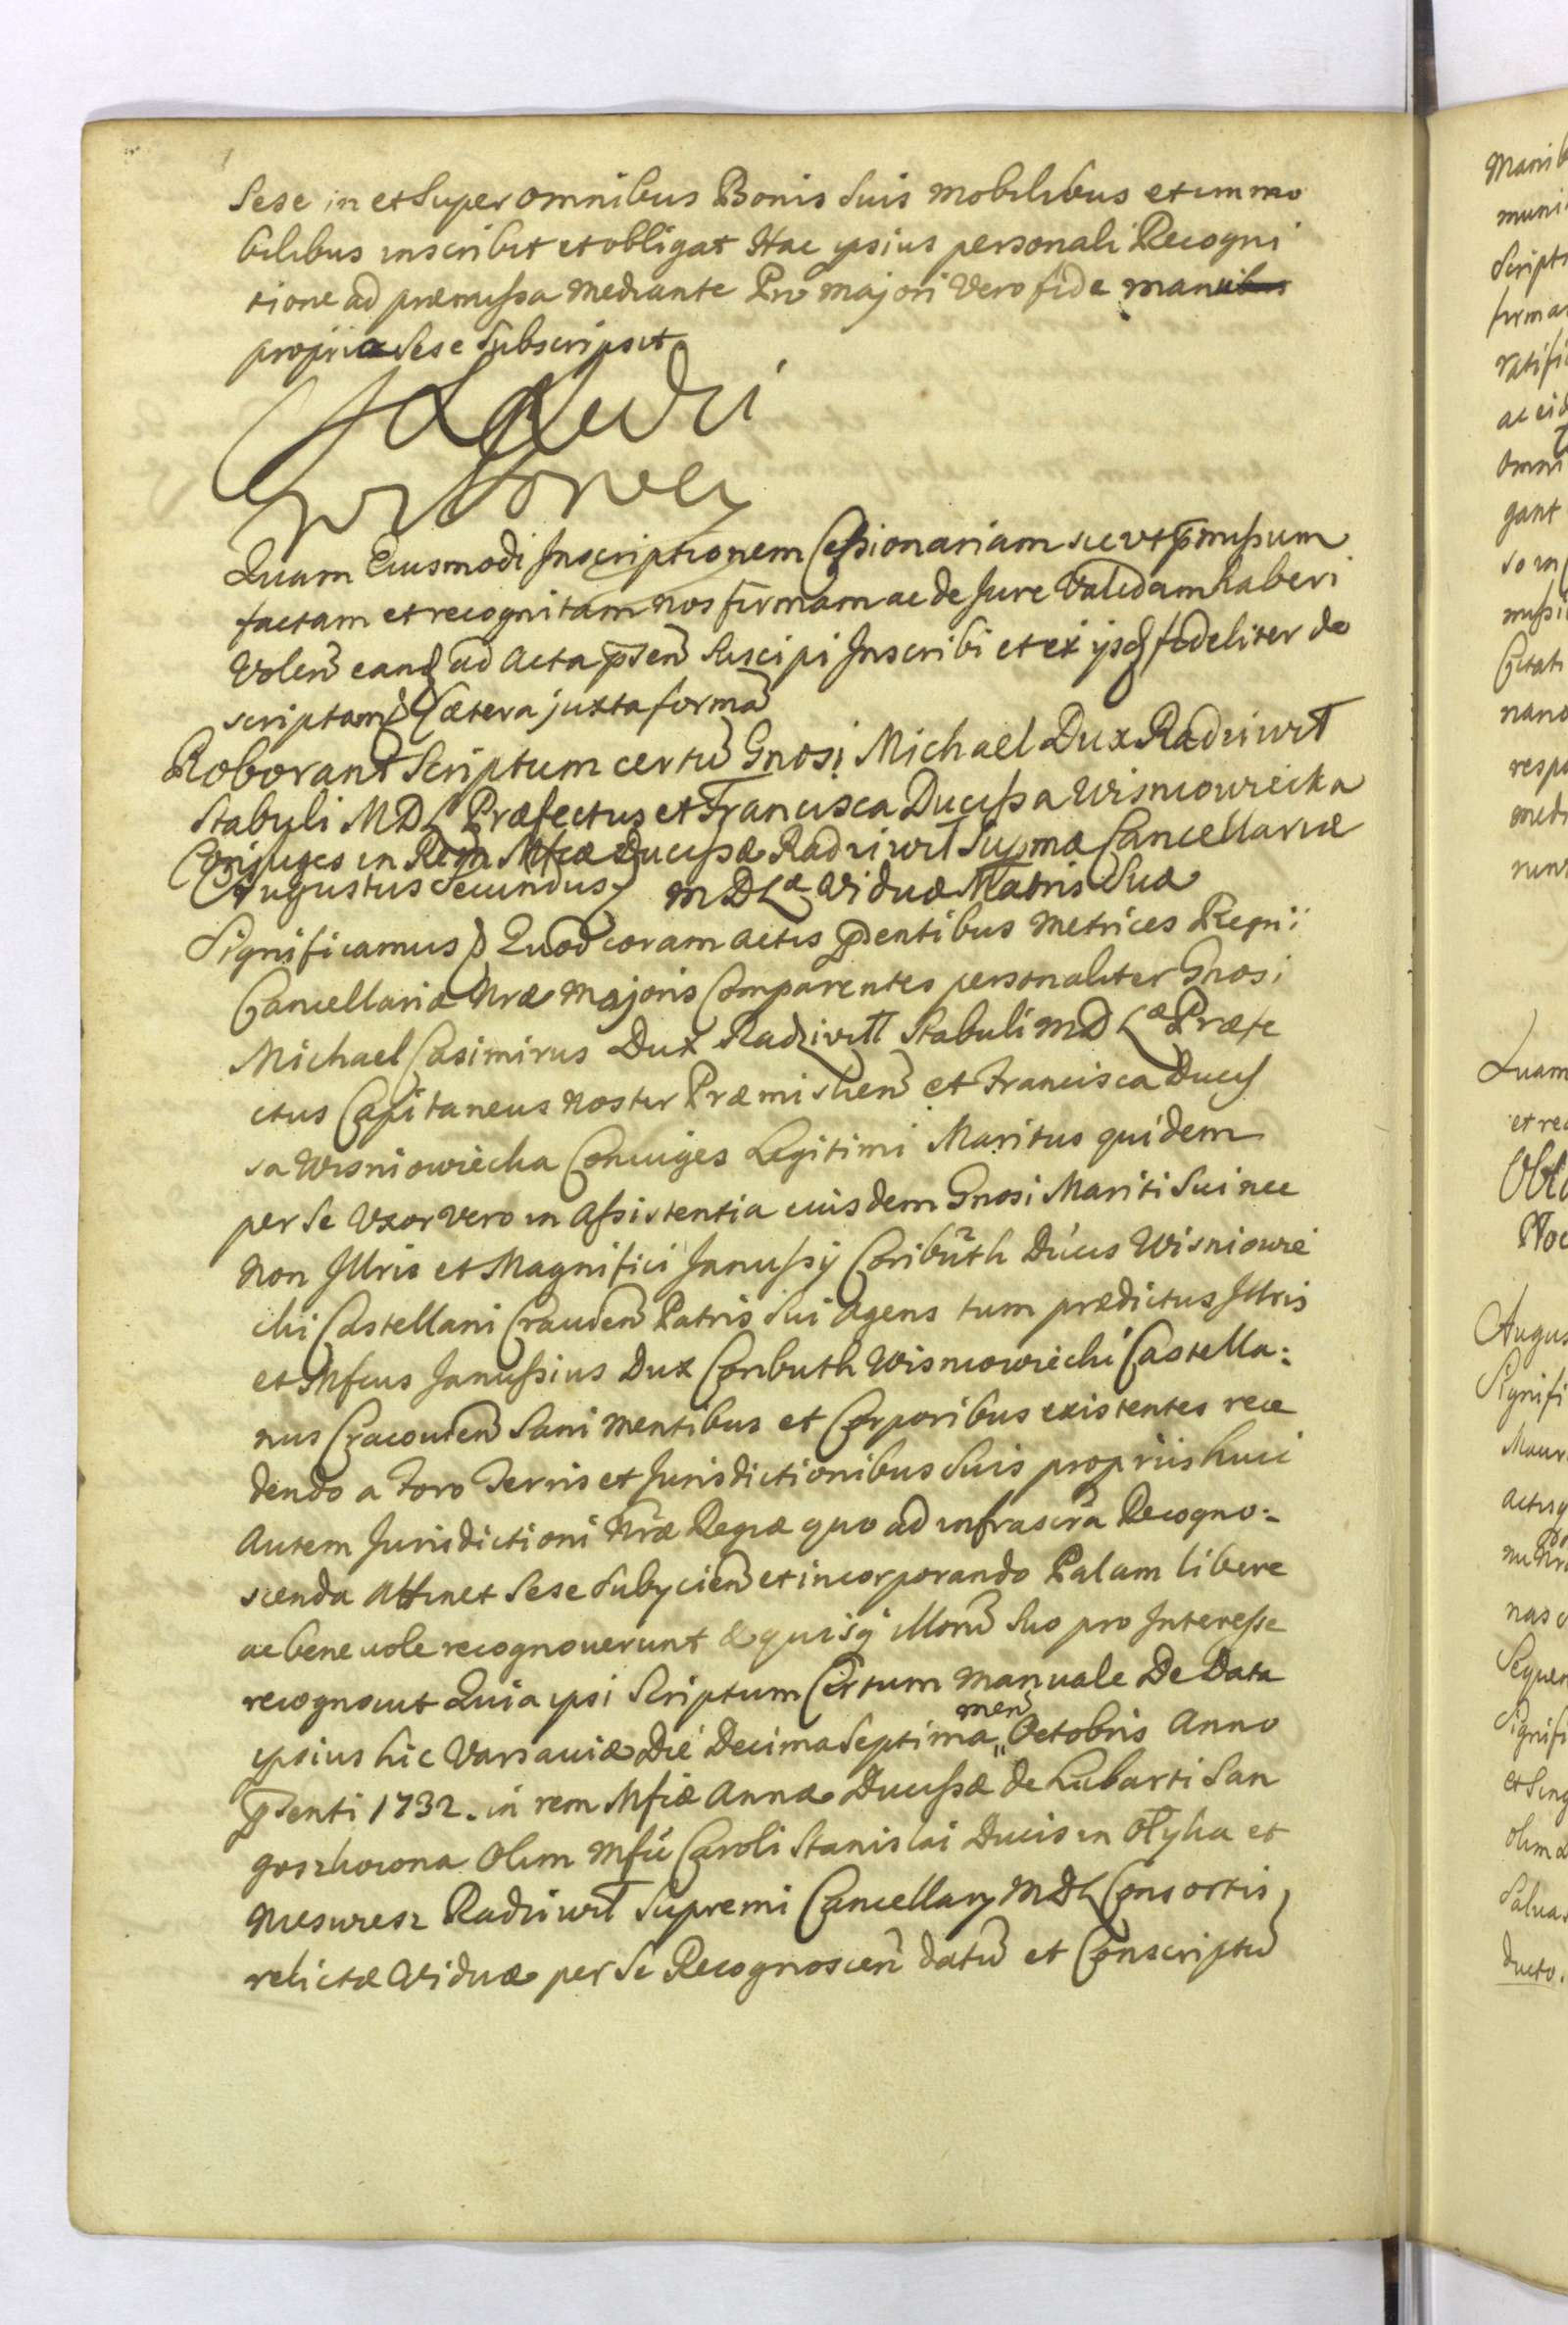 Sese in et Super omnibus Bonis Suis mobilibus et immo
bilibus inscribit et obligat Hac ipsius personali Recogni
tione ad præmissa mediante Pro majori Vero fide manu
propria Sese Subscripsit
Quam Eiusmodi Inscriptionem Cessionariam sic ut p̄missum
factam et recognitam nos firmam ac de Jure Validam haberi
Volen̄ eand ad Acta p̄sen̄ Suscipi Inscribi et ex ijsq fideliter de
scriptam Cætera juxta formā
Roborant Scriptum certū Gnosi Michael Dux Radziwił
Stabuli MDL Præfectus et Francisca Ducissa Wisniowiecka
Conjuges in Rem Mfcæ Ducissæ Radziwił Supmæ Cancellariæ
Augustus Secundus MDLæ Viduæ Matris Suæ
Significamus Quod coram actis p̄sentibus Metrices Regni
Cancellariæ Nræ Majoris Comparentes personaliter Gnosi
Michael Casimirus Dux Radziwiłł Stabuli MDLæ Præfe
ctus Capitaneus noster Præmislien̄ et Francisca Ducis
sa Wisniowiecka Coniuges Legitimi Maritus quidem
per Se Uxor vero in Assistentia eiusdem Gnosi Mariti Sui nec
non Illris et Magnifici Janussij Coributh Ducis Wisniowie
cki Castellani Cracuien̄ Patris Sui agens tum prædictus Illris
et Mfcus Janussius Dux Coributh Wisniowiecki Castella:
nus Cracouien̄ Sani Mentibus et Corporibus existentes rece
dendo a Foro Terris et Jurisdictionibus Suis proprijs huic
Autem Jurisdictioni Nræ Regiæ quo ad infrascrā Recogno:
scenda Attinet Sese Subijcien̄ et incorporando Palam libere
ac beneuole recognouerunt & quisq illorū Suo pro Interesse
recognouit Quia ipsi Scriptum Certum Manuale De Data
ipsius hic Varsauiæ Die Decima Septima men̄ Octobris Anno
p̄senti 1732. in rem Mfcæ Annæ Ducissæ de Lubarti San
goszkowna Olim Mfci Caroli Stanislai Ducis in Ołyka et
Nieswiesz Radziwił Supremi Cancellarij MDL Consortis,
relictæ Viduæ per Se Recognoscen̄ datū et Conscriptū